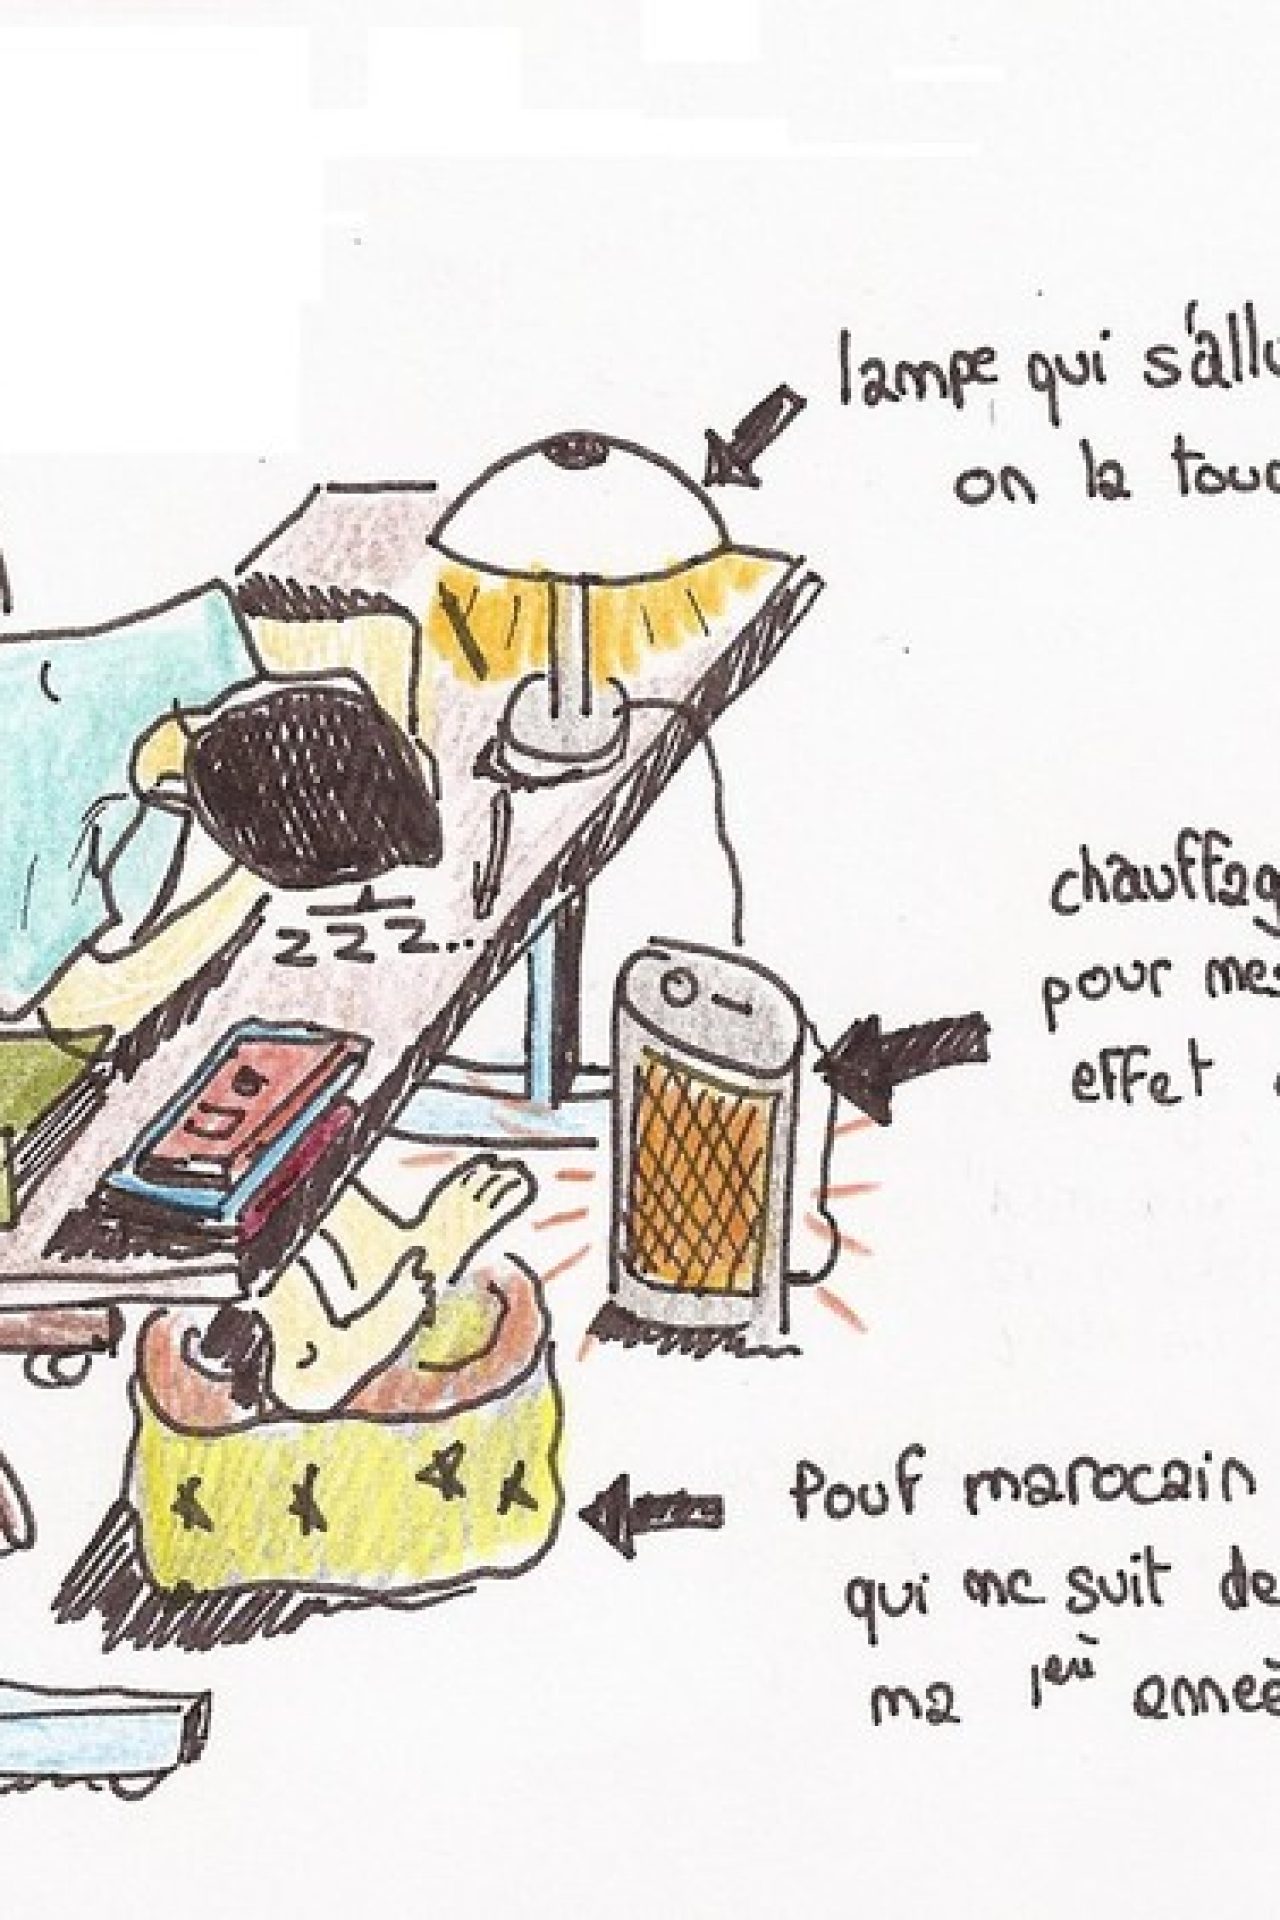 lampe qui s'allu
on la touc
zzz...
chauffag
pour mes
effet
Pouf marocain
qui me suit de
ma 1erè anneè